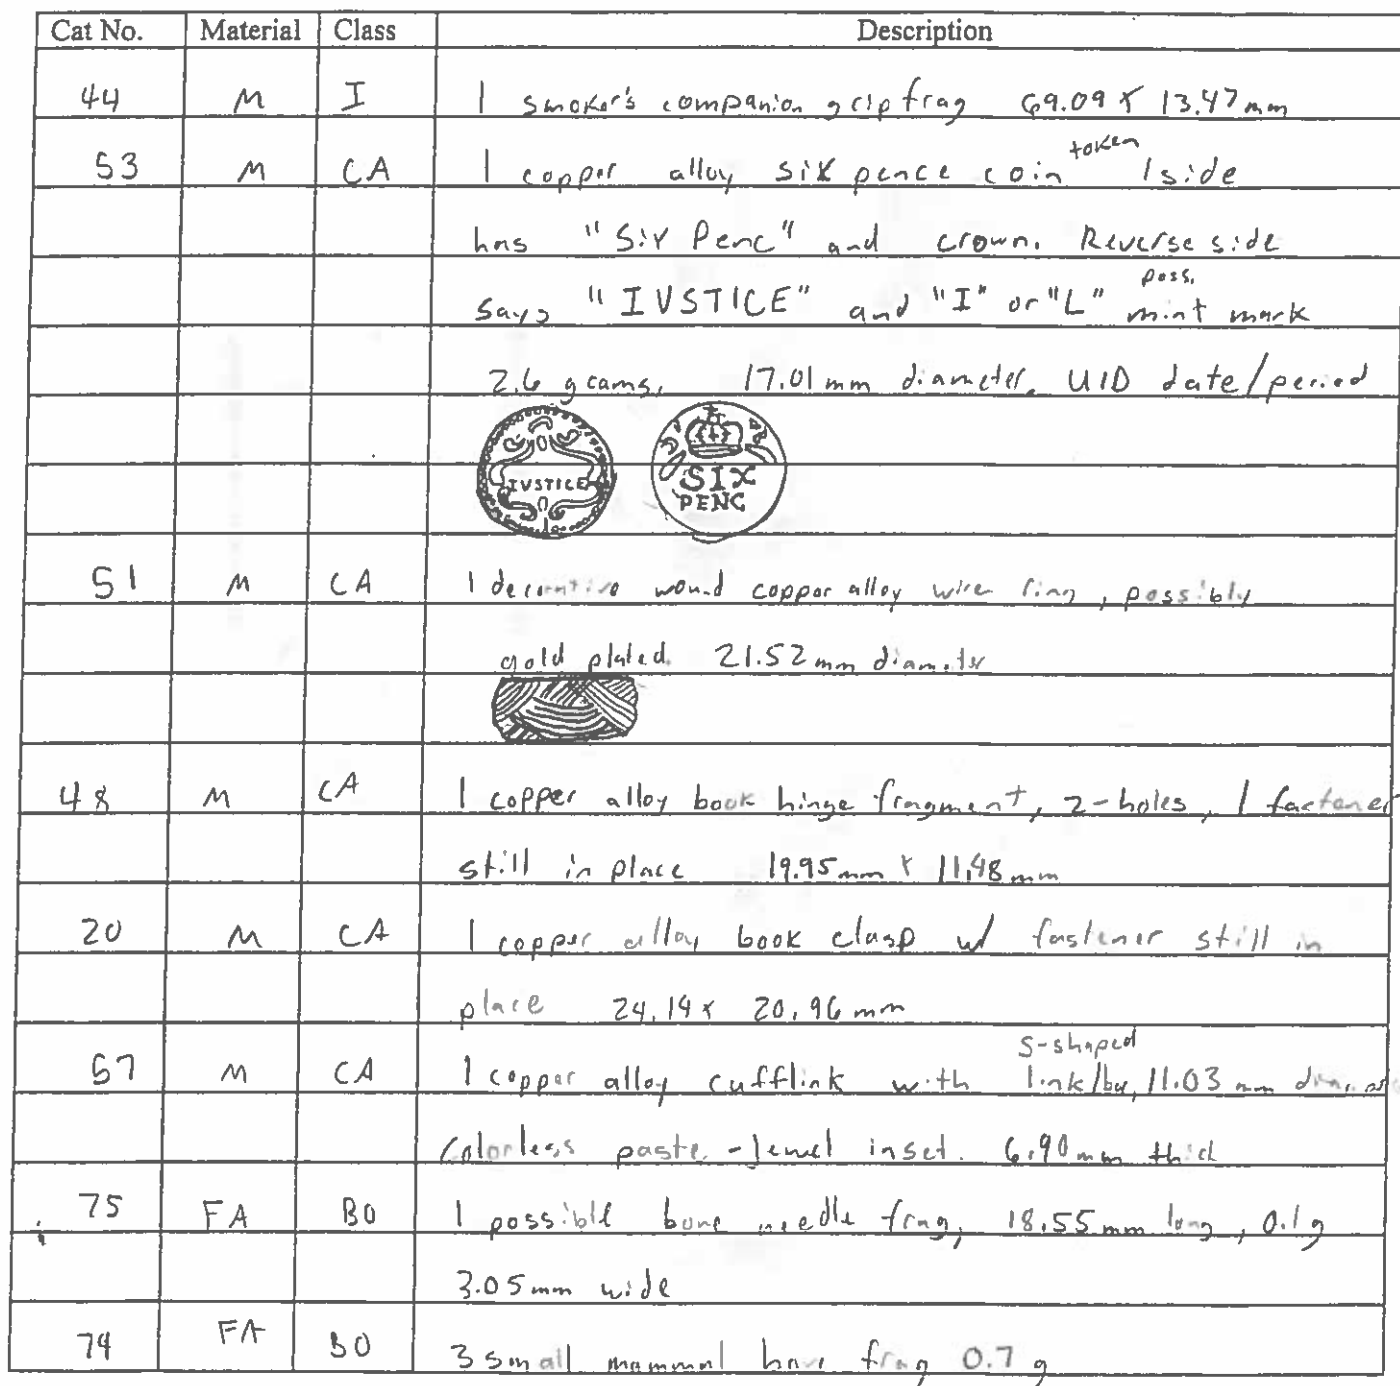 Cat No. Material Class Description
44 M I 1 smoker's companion grip frag 69.09 x 13.47 mm
53 M CA 1 copper alloy six pence coin token 1 side
has "Six Penc" and crown. Reverse side
says "IVSTICE" and "I" or "L" poss. mint mark
2.6 grams, 17.01 mm diameter. UID date/period
IVSTICE
SIX
PENC
51 M CA 1 decorative wound copper alloy wire ring, possibly
gold plated. 21.52 mm diameter
48 M CA 1 copper alloy book hinge fragment, 2-holes, 1 fastener
still in place 19.95 mm x 11.48 mm
20 M CA 1 copper alloy book clasp w/ fastener still in
place 24.14 x 20.96 mm
57 M CA 1 copper alloy cufflink with S-shaped link/ 11.03 mm
Colorless paste-jewel inset. 6.90 mm thick
75 FA BO 1 possible bone needle frag, 18.55 mm long, 0.1g
3.05 mm wide
74 FA BO 3 small mammal bone frag 0.7 g